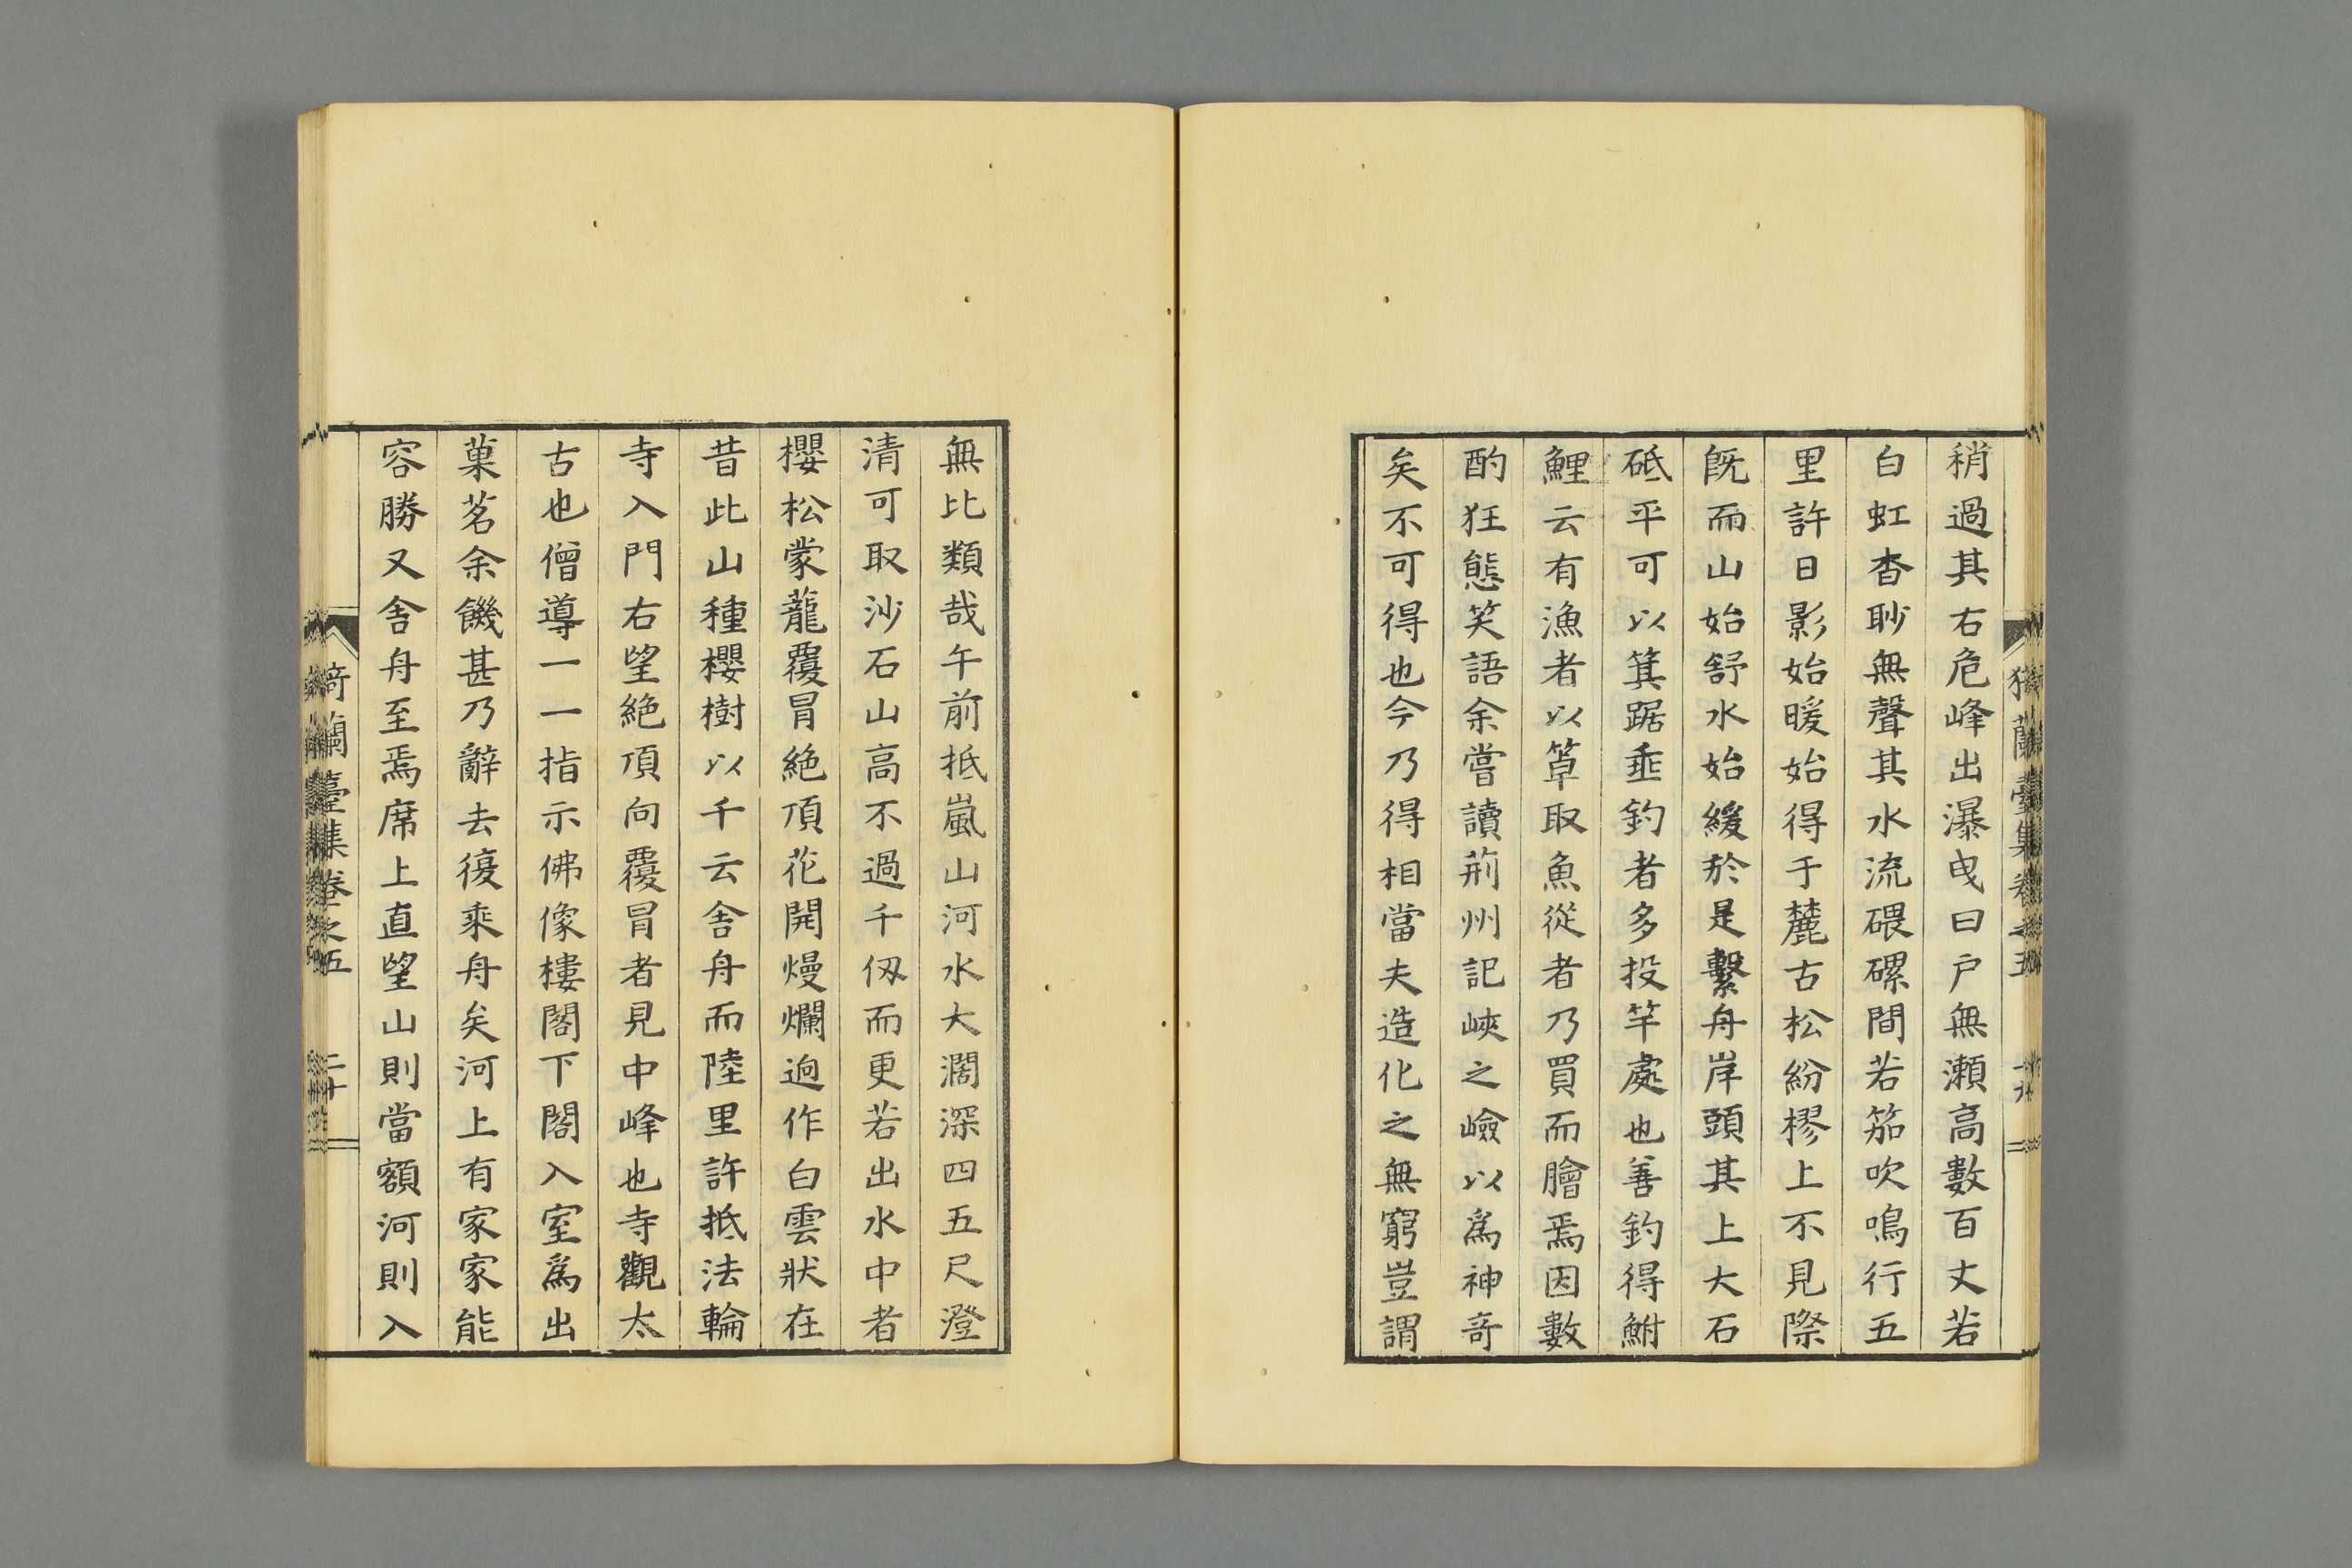 稍過其右危峰出瀑曳曰戶無瀬高數百丈若
白虹杳眇無聲其水流碨磥間若笳吹鳴行五
里許日影始暖始得于麓古松紛樛上不見際
既而山始舒水始緩於是繫舟岸頭其上大石
砥平可以箕踞垂釣者多投竿處也善釣得鮒
鯉云有漁者以䈇取魚從者乃買而膾焉因數
酌狂態笑語余嘗讀荊州記峽之嶮以為神奇
矣不可得也今乃得相當夫造化之無窮豈謂
無比類哉午前抵嵐山河水大濶深四五尺澄
清可取沙石山高不過千仭而更若出水中者
櫻松蒙蘢覆冒絶頂花開熳爛逈作白雲狀在
昔此山種櫻樹以千云舎舟而陸里許抵法輪
寺入門右望絶頂向覆冒者見中峰也寺觀太
古也僧導一一指示佛像樓閣下閣入室為出
菓茗余饑甚乃辭去復乘舟矣河上有家家能
容勝又舎舟至焉席上直望山則當額河則入
猗蘭臺集卷之五 二十